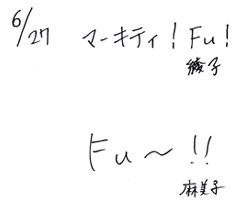 6/27 マーキティ!Fu!
綾子
Fu〜!!
麻美子